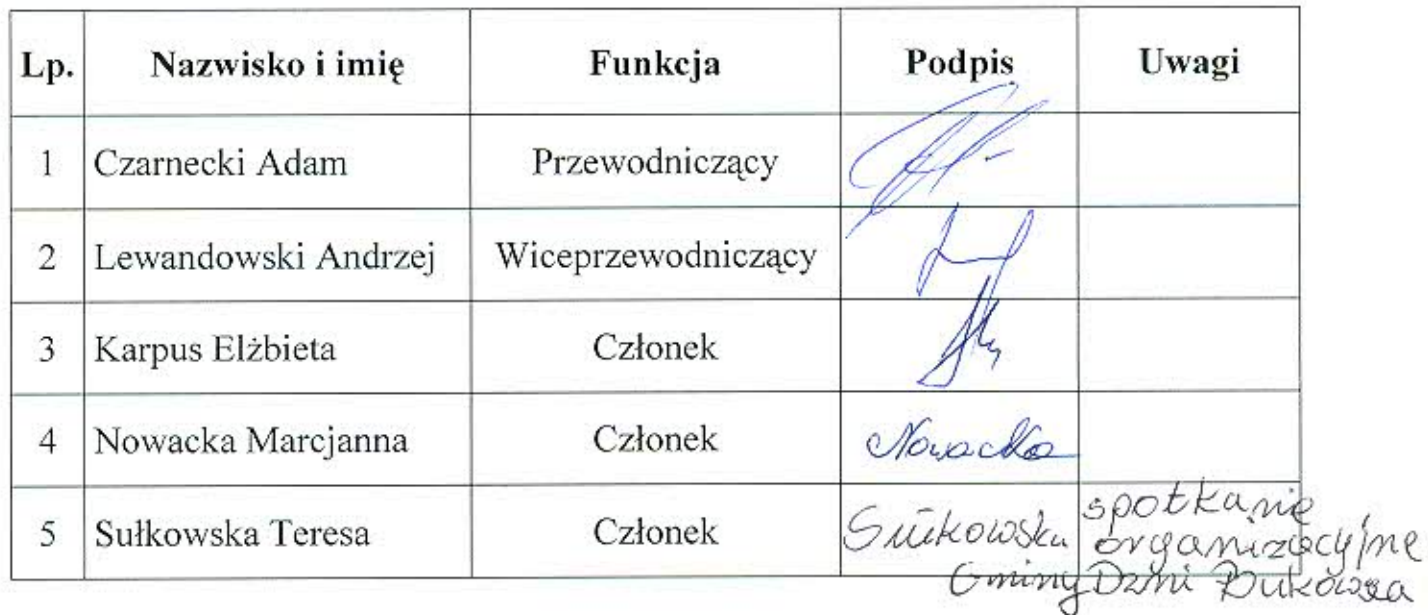 Lp. Nazwisko i imię Funkcja Podpis Uwagi
1 Czarnecki Adam Przewodniczący
2 Lewandowski Andrzej Wiceprzewodniczący
3 Karpus Elżbieta Członek
4 Nowacka Marcjanna Członek Nowacka
5 Sułkowska Teresa Członek Sułkowska spotkanie
organizacyjne
Gminy